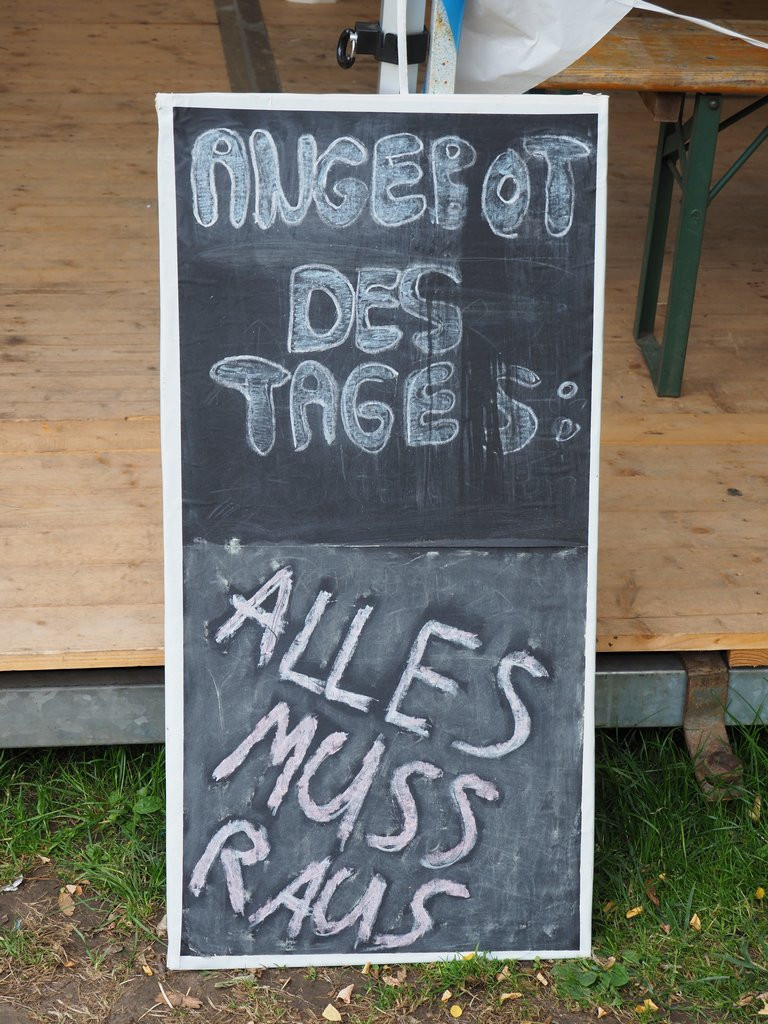 ANGEPOT
DES
TAGES:
ALLES
MUSS
RAUS